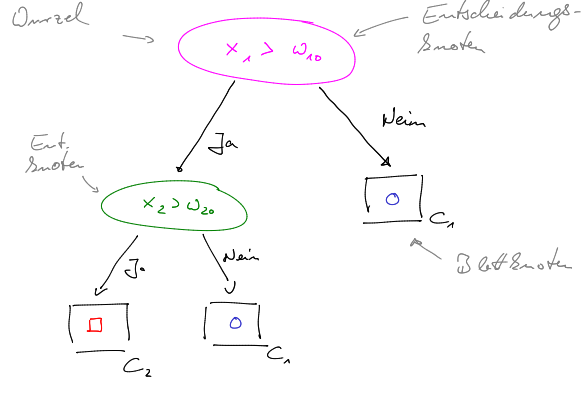 Wurzel
Entscheidungs-
knoten
x₁ > w₁₀
Ja
Nein
Ent.
knoten
x₂ > w₂₀
C₁
Blattknoten
Ja
Nein
C₂
C₁